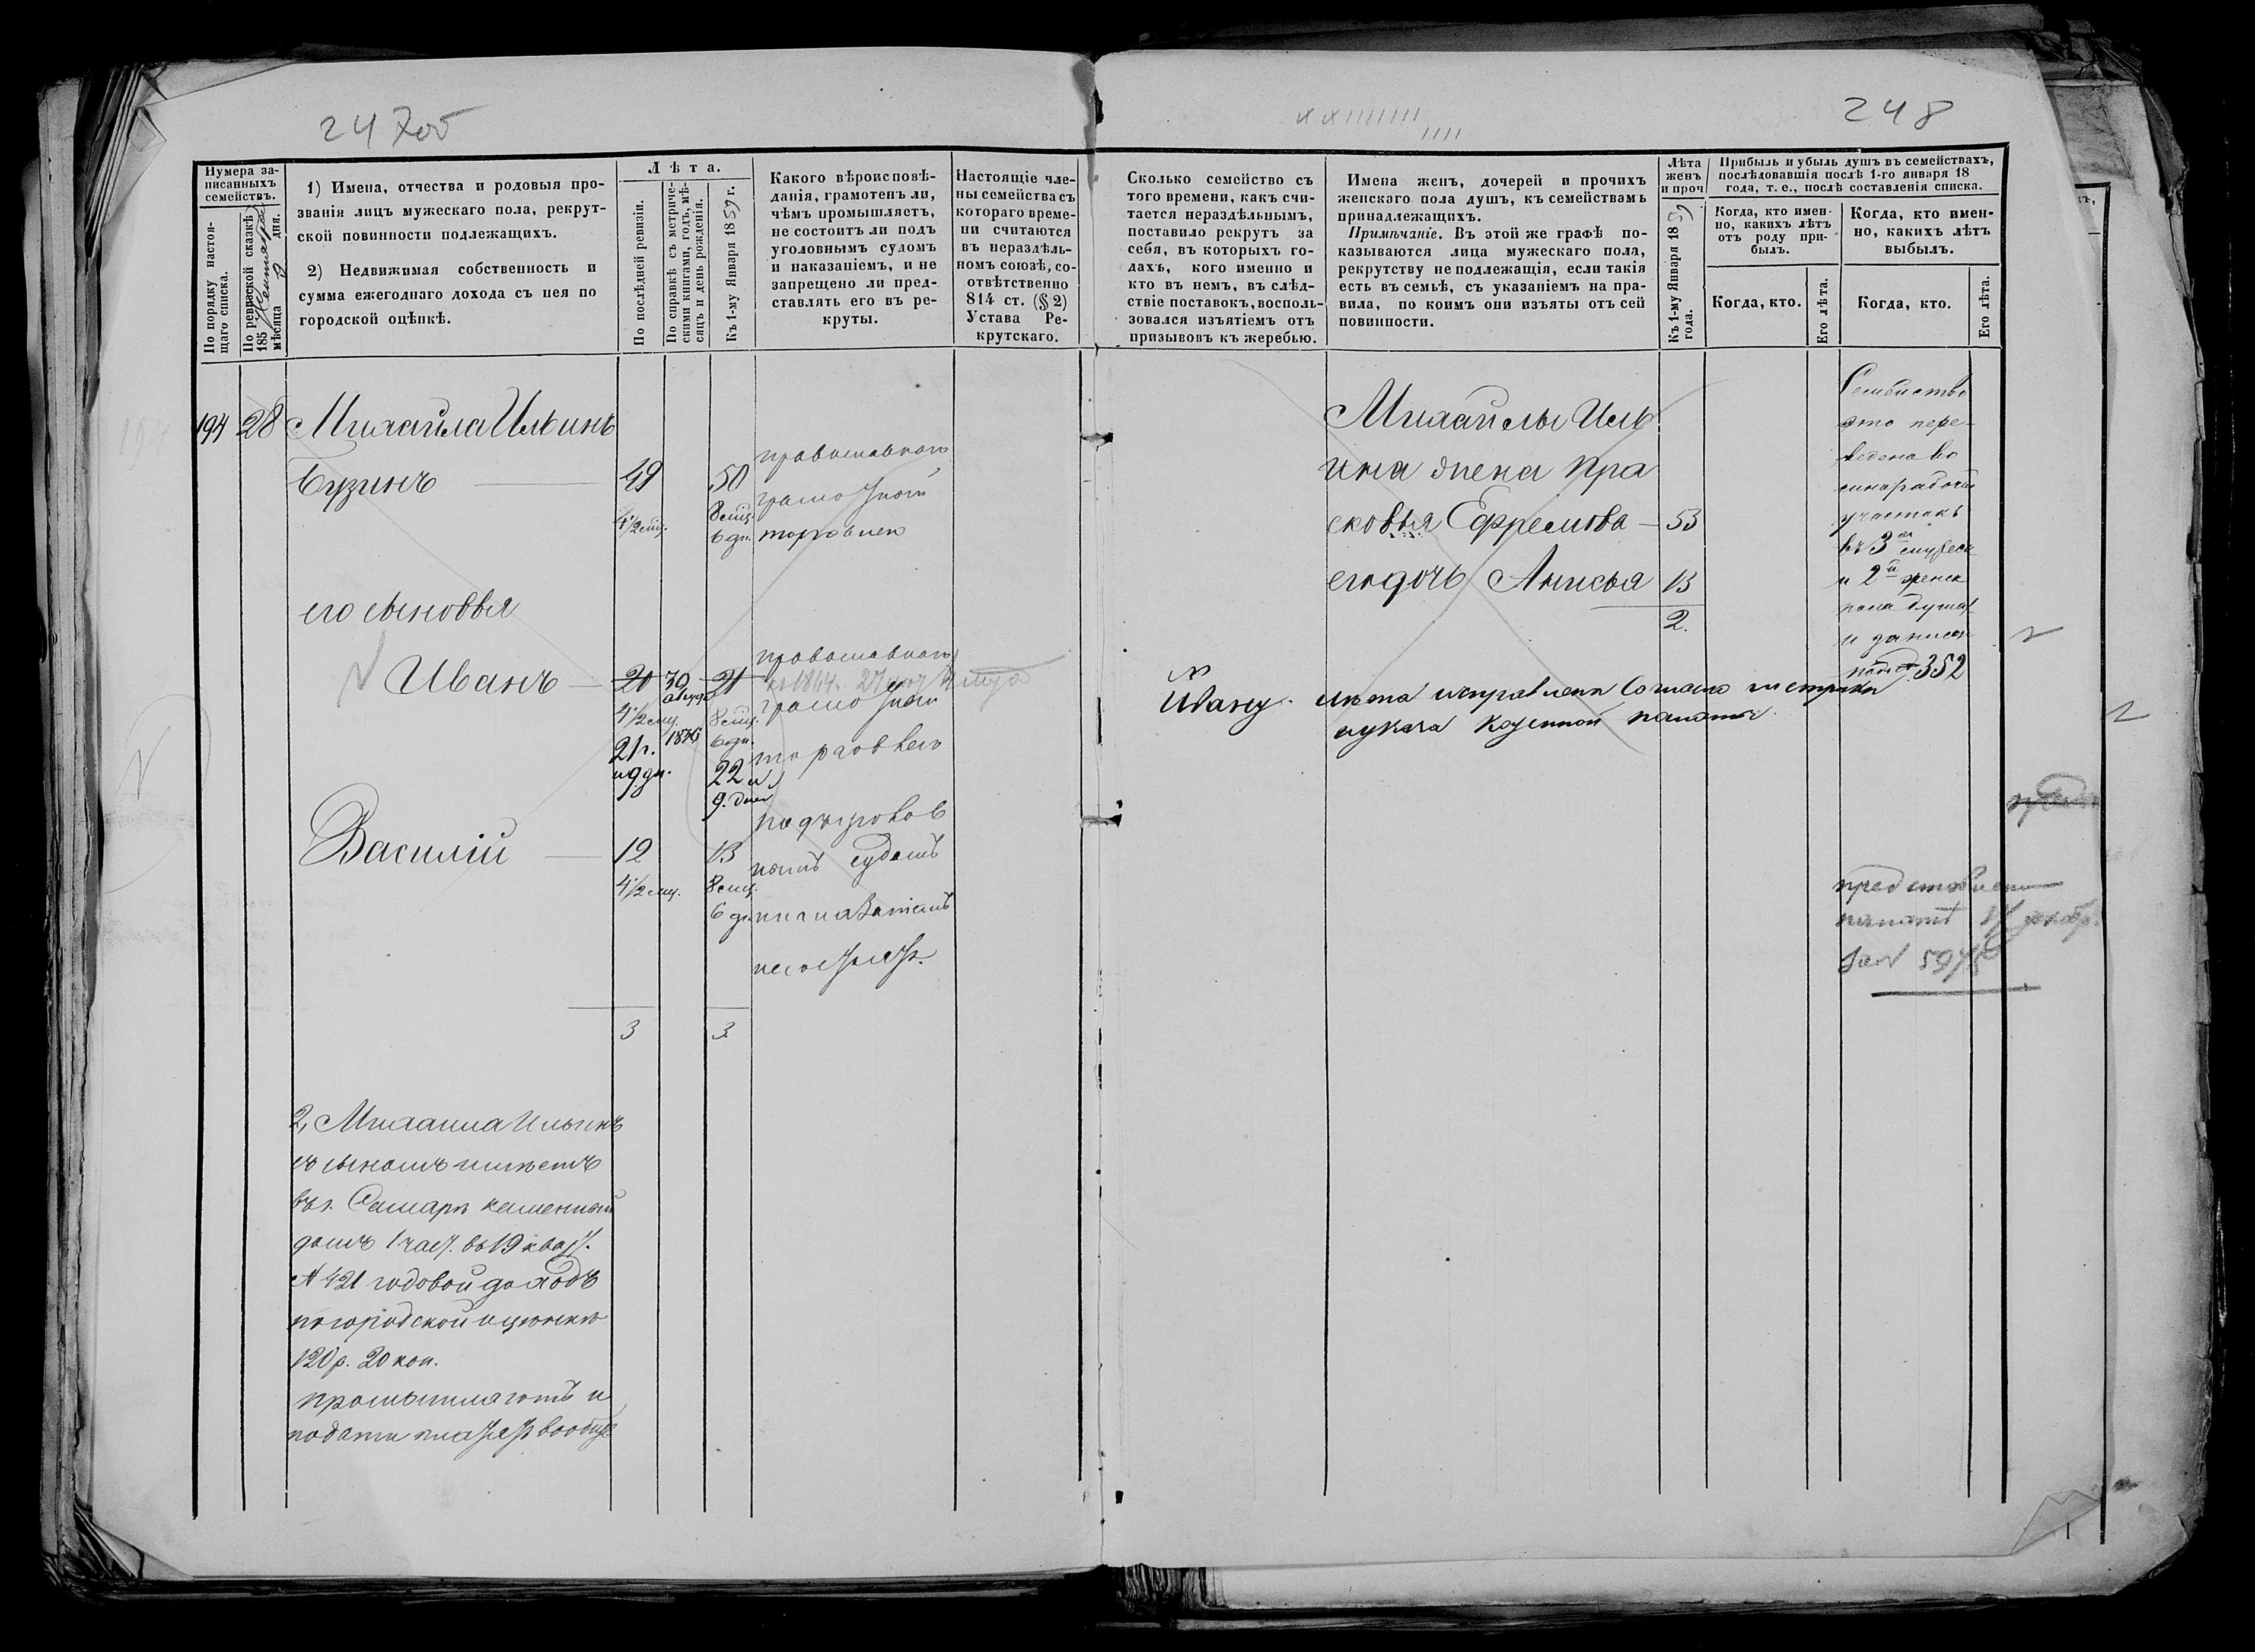 247об
248
Нумера за-
писанныхъ
семействъ.
По порядку настоя-
щаго списка.
По ревизской сказкѣ
185
мѣсяца дня.
1) Имена, отчества и родовыя про-
званія лицъ мужескаго пола, рекрут-
ской повинности подлежащихъ.
2) Недвижимая собственность и
сумма ежегоднаго дохода съ нея по
городской оцѣнкѣ.
Лѣта.
По послѣдней ревизіи.
По справкѣ съ метриче-
скими книгами, годъ, мѣ-
сяцъ и день рожденія.
Къ 1-му Января 1859 г.
Какого вѣроисповѣ-
данія, грамотенъ ли,
чѣмъ промышляетъ,
не состоитъ ли подъ
уголовнымъ судомъ
и наказаніемъ, и не
запрещено ли пред-
ставлять его въ ре-
круты.
Настоящіе чле-
ны семейства съ
котораго време-
ни считаются
въ нераздѣль-
номъ союзѣ, со-
отвѣтственно
814 ст. (§ 2)
Устава Ре-
крутскаго.
Сколько семейство съ
того времени, какъ счи-
тается нераздѣльнымъ,
поставило рекрутъ за
себя, въ которыхъ го-
дахъ, кого именно и
кто въ немъ, въ слѣд-
ствіе поставокъ, восполь-
зовался изъятіемъ отъ
призывовъ къ жеребью.
Имена женъ, дочерей и прочихъ
женскаго пола душъ, къ семействамъ
принадлежащихъ.
Примѣчаніе. Въ этой же графѣ по-
казываются лица мужескаго пола,
рекрутству не подлежащія, если такія
есть въ семьѣ, съ указаніемъ на пра-
вила, по коимъ они изъяты отъ сей
повинности.
Лѣта
женъ
и проч
Къ 1-му Января 1859
года.
Прибыль и убыль душъ въ семействахъ,
послѣдовавшія послѣ 1-го января 18
года, т. е., послѣ составленія списка.
Когда, кто имен-
но, какихъ лѣтъ
отъ роду при-
былъ.
Когда, кто.
Его лѣта.
Когда, кто имен-
но, какихъ лѣтъ
выбылъ.
Когда, кто.
Его лѣта.
194 28 Михайла Ильинъ
Бузинъ 49 50
4 1/2 мц. 8 мц.
6 дн.
православнаго
грамотной
торговлей
его сыновья
Иванъ 20 30 21
4 1/2 мц. 1836 8 мц.
6 дн.
21 г. 22 и
и 9 дн. 9. дней
православнаго
грамотной
торговлею
Василій 12 13
4 1/2 мц. 8 мц.
6 дн.
подъ уголов
нымъ судомъ
и наказаніемъ
не состоятъ.
3 3
2, Михаила Ильинъ
съ сыномъ имѣетъ
въ г. Самарѣ каменный
домъ 1 част. въ 19 кварт.
№ 421 годовой доходъ
по городской оцѣнкѣ
120 р. 20 коп.
промышляютъ и
подати платятъ вообще
Михайлы Иль
ина жена Пра
сковья Ефремова 53
его дочь Анисья 13
2.
Ивану. лѣта исправлены согласно
указа Казенной палаты.
Семейство
это пере-
ведено во
участокъ
въ 3 мужеск
и 2 женск
пола душах
и записан
под № 352
палатѣ
за № 5975